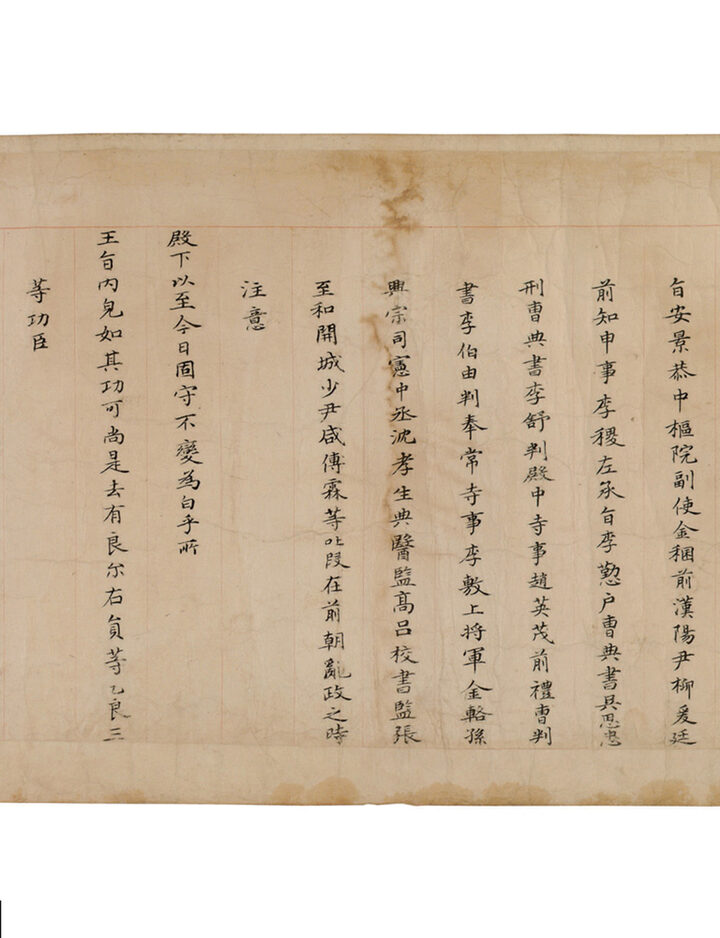 旨安景恭中樞院副使金稇前漢陽尹柳爰廷
前知申事李稷左承旨李懃户曹典書吳思忠
刑曹典書李舒判殿中寺事趙英茂前禮曹判
書李伯由判奉常寺事李敷上将軍金輅孫
興宗司憲中丞沈孝生典醫監高呂校書監張
至和開城少尹咸傅霖等叱段在前朝亂政之時
注意
殿下以至今日固守不變為白乎所
王旨内皃如其功可尚是去有良尔右員等乙良三
等功臣